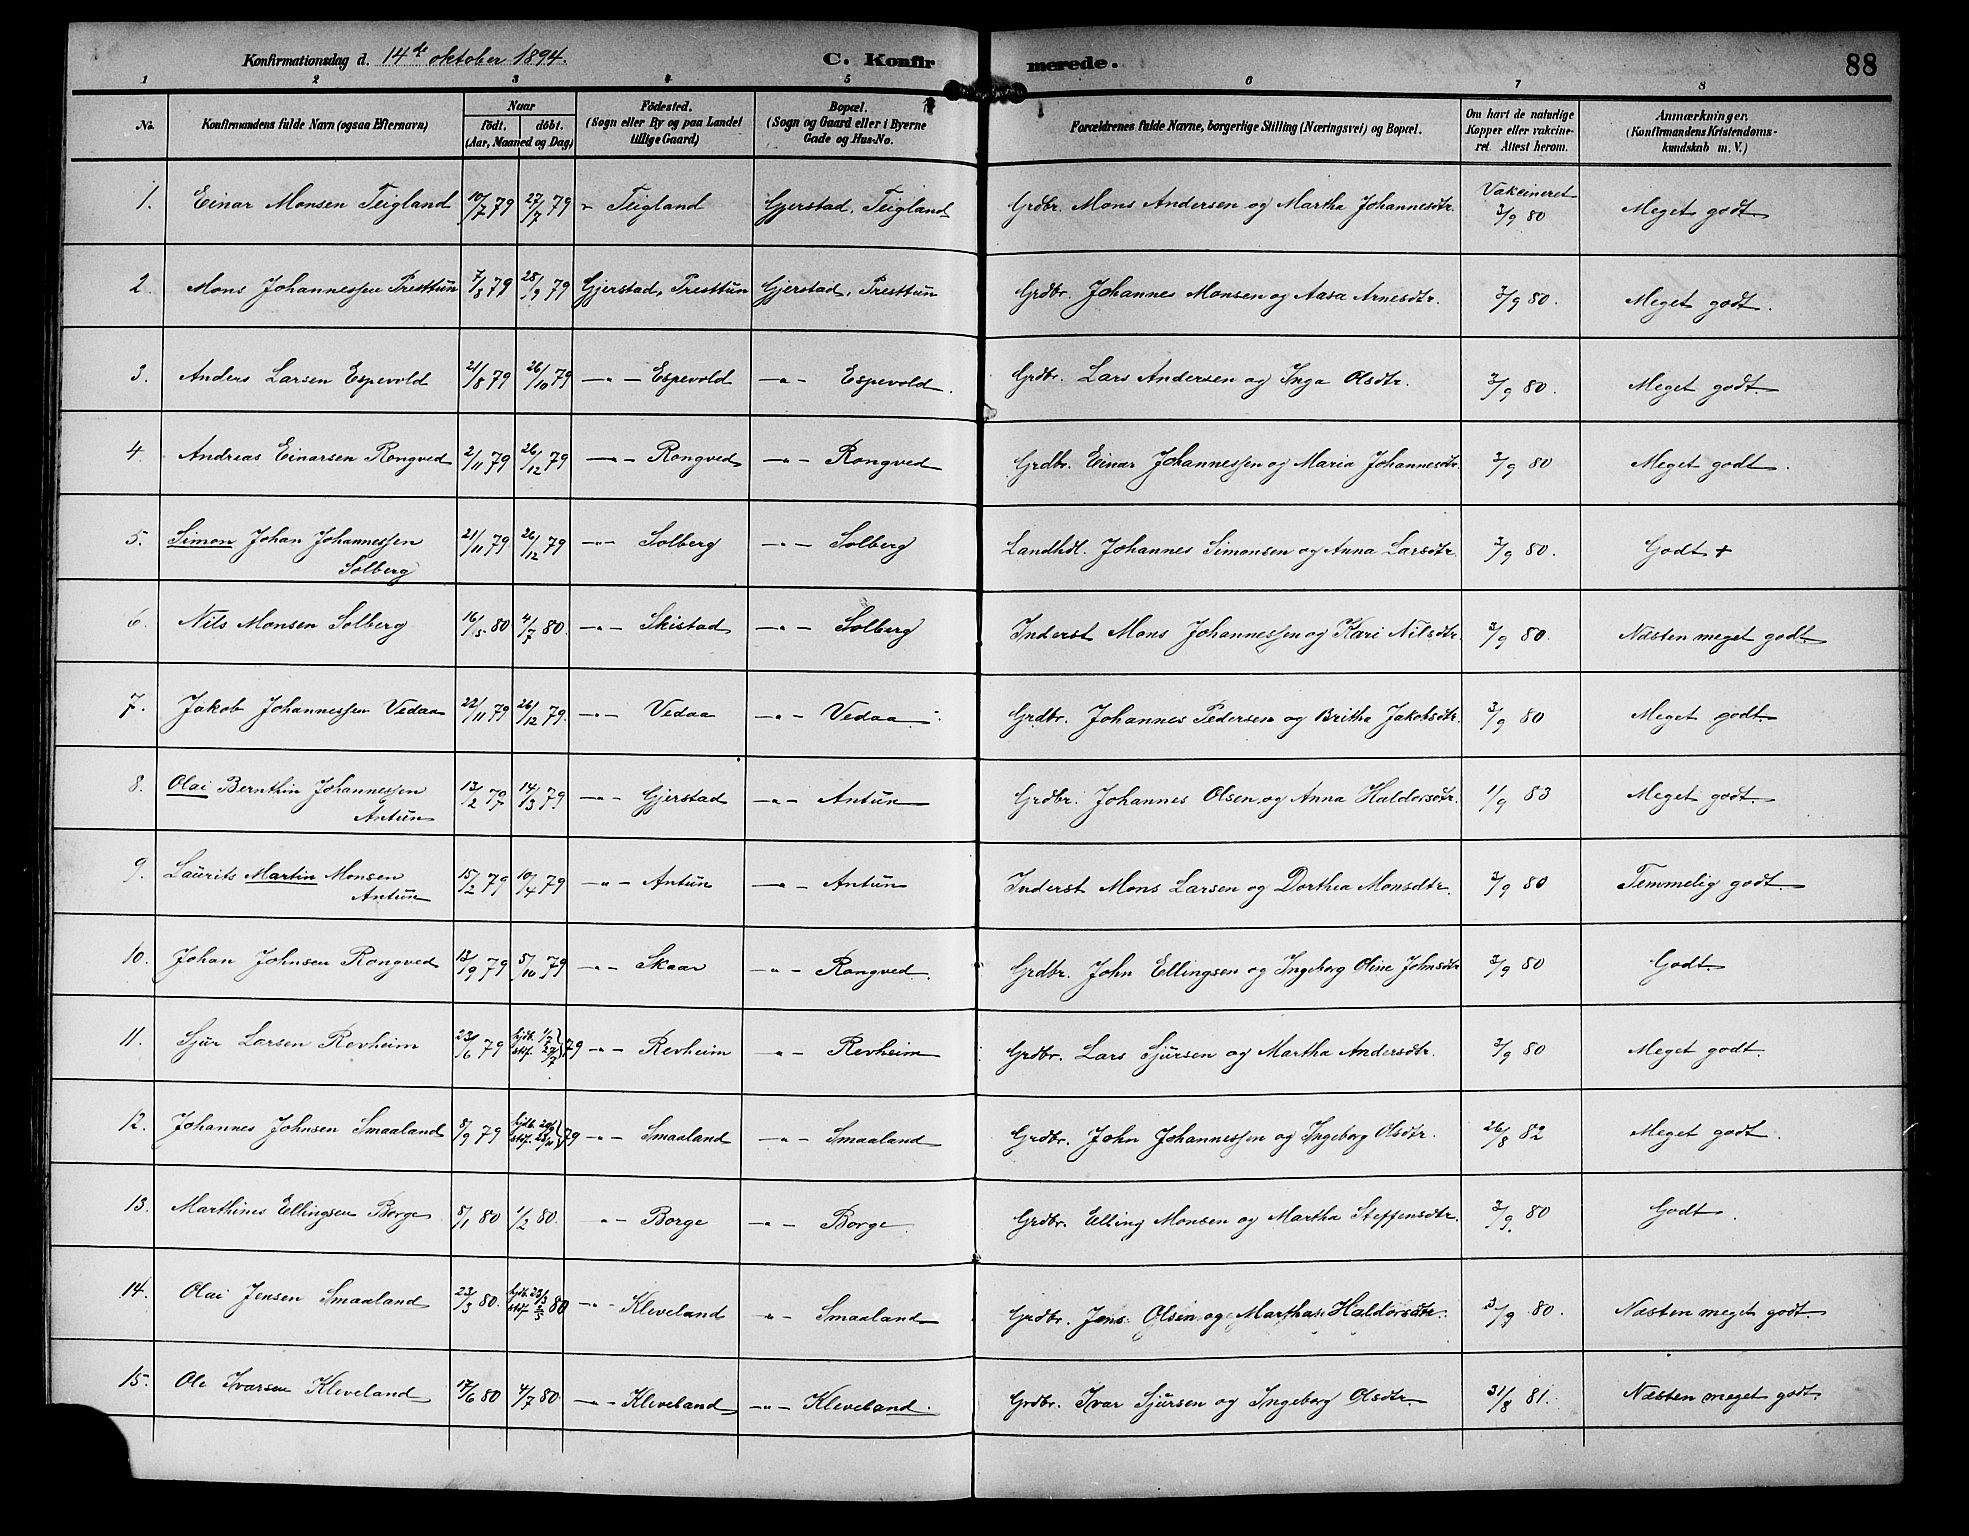 Konfirmationsdag d. 14de oktober 1894.
C. Konfirmerede.
88
1 2 3 4 5 6 7 8
No.
Konfirmandens fulde Navn (ogsaa Efternavn)
Naar
født. døbt.
(Aar, Maaned og Dag)
Fødested.
(Sogn eller By og paa Landet
tillige Gaard)
Bopæl.
(Sogn og Gaard eller i Byerne
Gade og Hus-No.
Forældrenes fulde Navne, borgerlige Stilling (Næringsvei) og Bopæl.
Om havt de naturlige
Kopper eller vakcine-
ret. Attest herom.
Anmærkninger.
(Konfirmandens Kristendoms-
kundskab m. V.)
1. Einar Monsen Teigland 10/7 79 27/7 79 " Teigland Gjerstad, Teigland Grdbr. Mons Andersen og Martha Johannesdtr. Vakcineret 3/9 80 Meget godt
2 Mons Johannessen Presttun 7/8 79 28/9 79 Gjerstad, Presttun Gjerstad, Presttun Grdbr. Johannes Monsen og Aasa Arnesdtr. 3/9 80. Meget godt.
3. Anders Larsen Espevold 21/8 79 26/10 79 —"— Espevold —"— Espevold. Grdbr. Lars Andersen og Inga Olsdtr. 3/9 80. Meget godt.
4 Andreas Einarsen Rongved 2/11 79 26/12 79 —"— Rongved —"— Rongved Grdbr. Einar Johannessen og Maria Johannesdtr. 3/9 80 Meget godt.
5. Simon Johan Johannessen
Solberg 21/11 79 26/12 79 —"— Solberg —"— Solberg Landhdl. Johannes Simonsen og Anna Larsdtr. 3/9 80. Godt +
6. Nils Monsen Solberg 16/5 80 4/7 80. —"— Skistad —"— Solberg Inderst Mons Johannessen og Kari Nilsdtr. 3/9 80. Næsten meget godt.
7. Jakob Johannessen Vedaa 22/11 79 26/12 79. —"— Vedaa —"— Vedaa Grdbr. Johannes Pedersen og Britha Jakobsdtr. 3/9 80 Meget godt.
8. Olai Bernthin Johannessen
Antun 13/2 79 14/3 79 —"— Gjerstad —"— Antun Grdbr. Johannes Olsen og Anna Haldorsdtr. 1/9 83 Meget godt.
9. Laurits Martin Monsen
Antun 15/2 79 10/4 79 —"— Antun —"— Antun Inderst Mons Larsen og Dorthea Monsdtr. 3/9 80 Temmelig godt.
10. Johan Johnsen Rongved 13/9 79 5/10 79 —"— Skaar —"— Rongved. Grdbr. John Ellingsen og Ingeborg Oline Johnsdtr 3/9 80 Godt.
11. Sjur Larsen Revheim 23/6 79 hjdb. 1/7 stdf. 27/7 79 —"— Revheim —"— Revheim Grdbr. Lars Sjursen og Martha Andersdtr. 3/9 80 Meget godt.
12. Johannes Johnsen Smaaland 8/9 79 hjdb. stdf. 79 —"— Smaaland —"— Smaaland Grdbr. John Johannessen og Ingeborg Olsdtr. 26/8 82 Meget godt.
13. Marthines Ellingsen Borge 8/1 80 1/2 80. "— Borge —"— Borge. Grdbr. Elling Monsen og Martha Steffensdtr. 3/9. 80 Godt.
14. Olai Jensen Smaaland 23/3 80. hjdb. 23/3 stdf. 80 —"— Kleveland " Smaaland Grdbr. Jens Olsen og Martha Haldorsdtr. 3/9 80. Næsten meget godt.
15. Ole Ivarsen Kleveland 17/6 80 4/7 80 —"— Kleveland —"— Kleveland. Grdbr. Ivar Sjursen og Ingeborg Olsdtr. 31/8 81. Næsten meget godt.